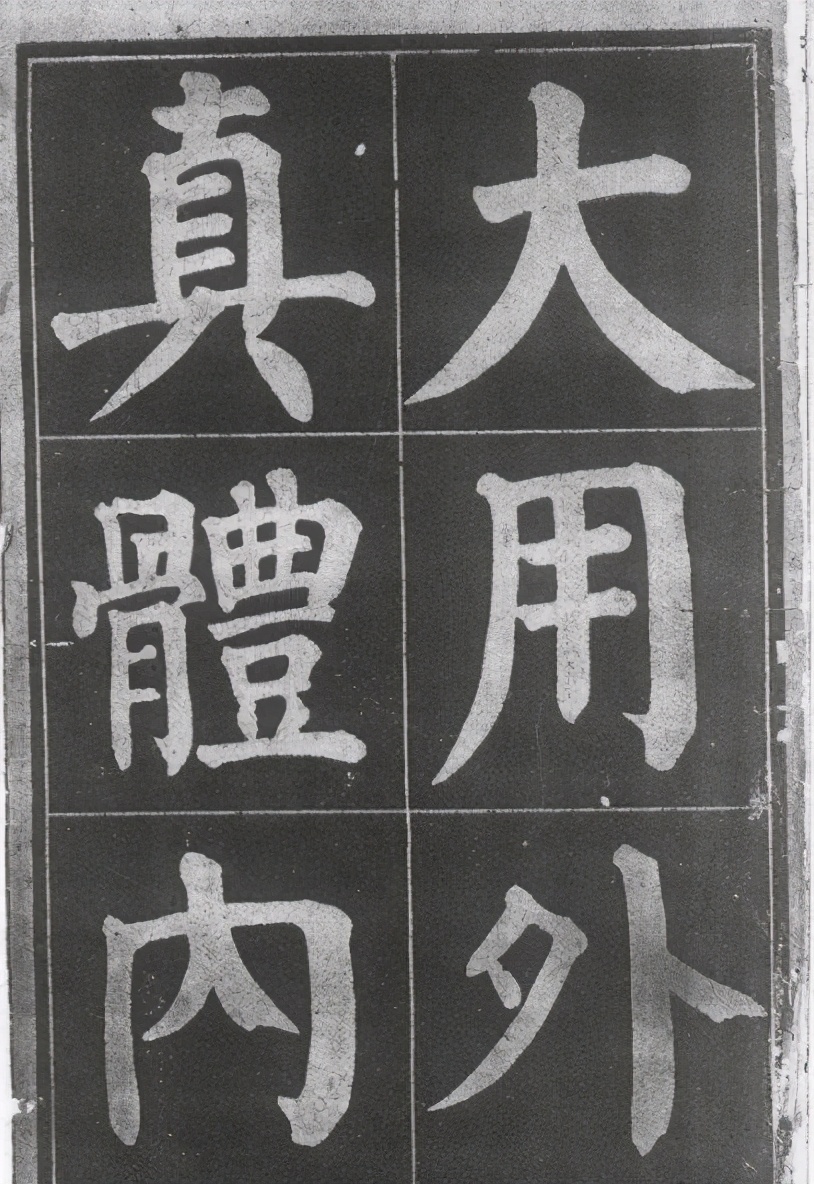 大用外
真體內